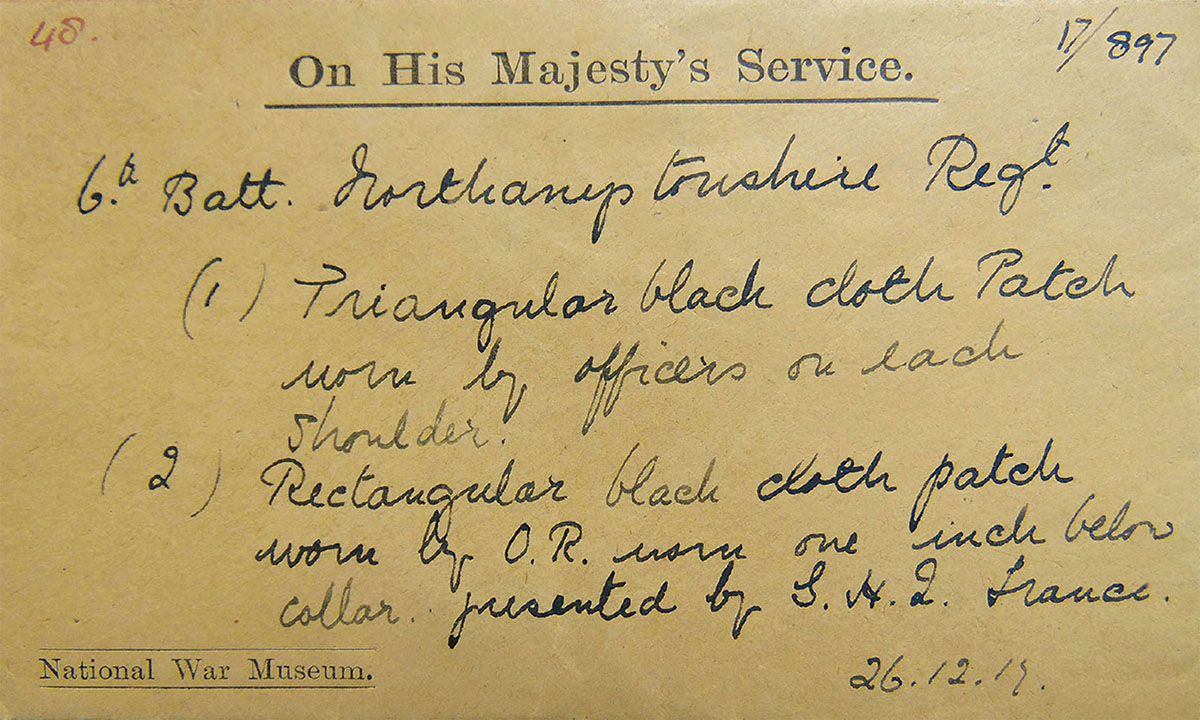 48.
17/897
On His Majesty's Service.
6th Batt. Northamptonshire Regt.
(1) Triangular black cloth Patch
worn by officers on each
shoulder.
(2) Rectangular black cloth patch
worn by O.R. worn one inch below
collar. presented by G.H.Q. France.
National War Museum.
26.12.17.